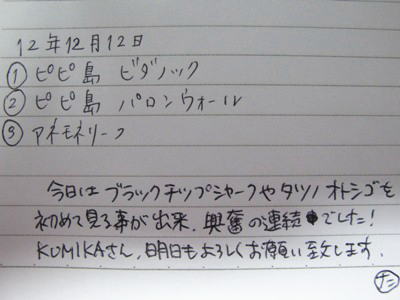 12年12月12日
① ピピ島 ビダノック
② ピピ島 パロンウォール
③ アネモネリーフ
今日はブラックチップシャークやタツノオトシゴを
初めて見る事が出来、興奮の連続でした!
KUMIKAさん、明日もよろしくお願い致します。